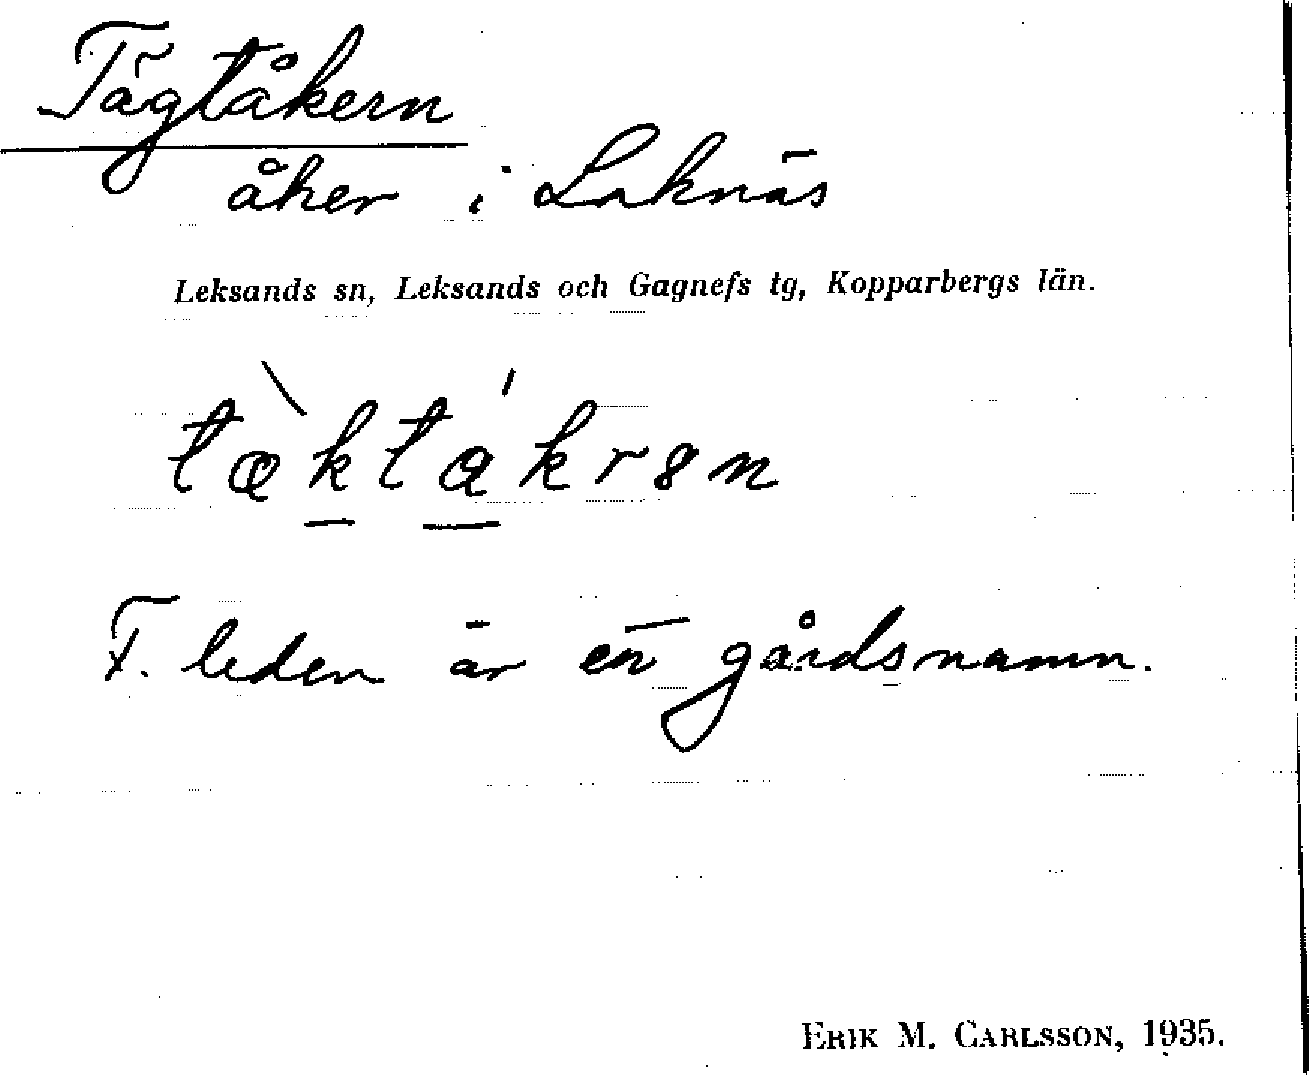 Tägtåkern
åker i Laknäs
Leksands sn, Leksands och Gagnefs tg, Kopparbergs län.
tæ̀ktákrən
F. leden är en gårdsnamn.
ERIK M. CARLSSON, 1935.